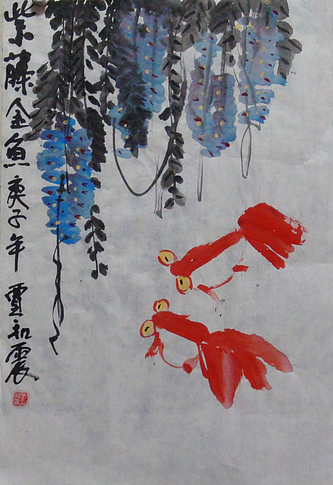 紫藤金魚庚子年 賈和震